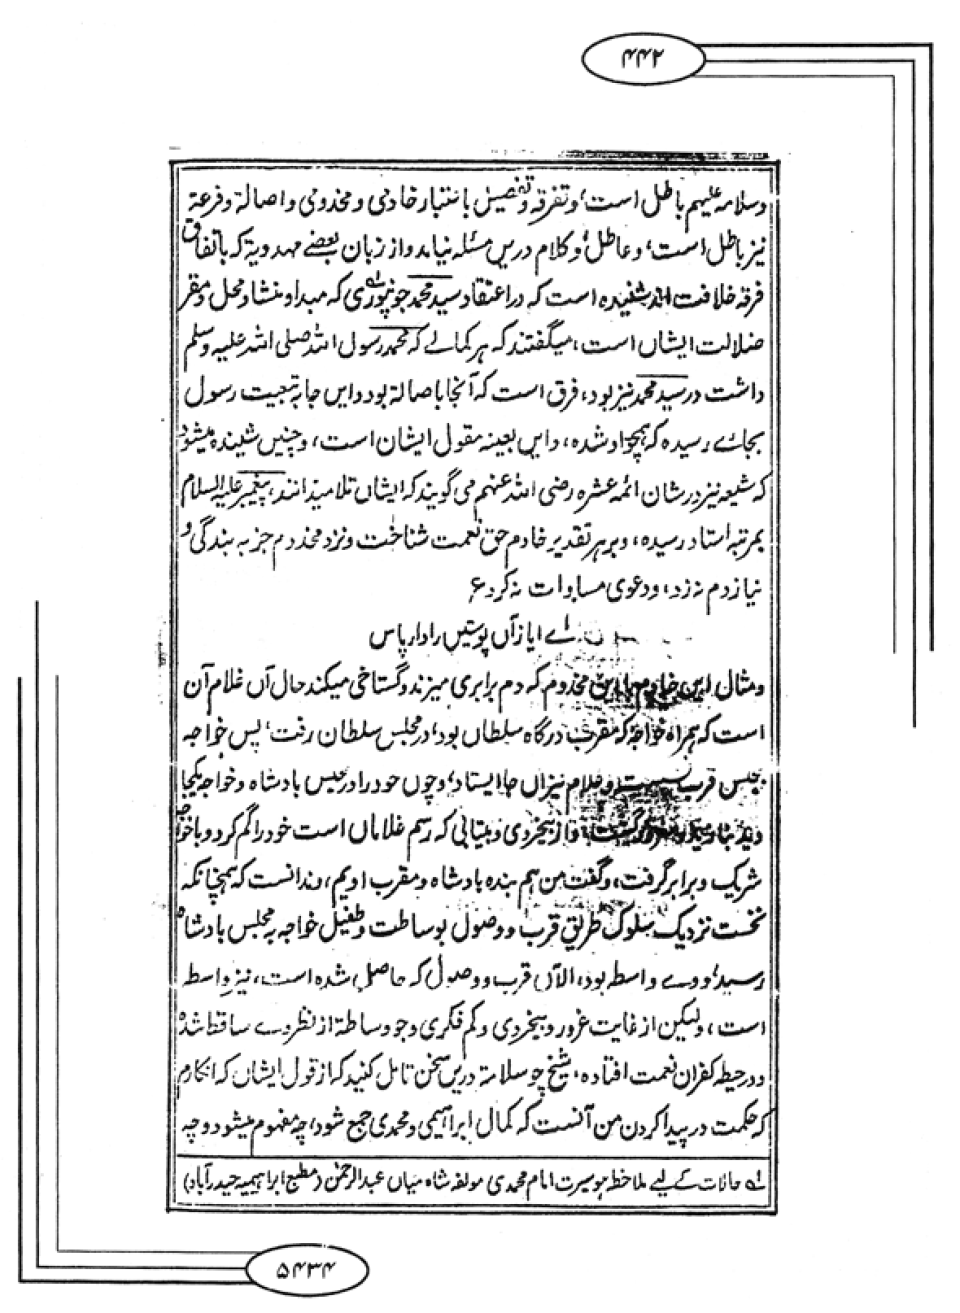 ۴۴۲
وسلامہ علیہم باطل است، و تفرقہ و تفصیل باعتبار خادمی و مخدومی و اصالة و فرعیة
نیز باطل است، و عاطل، و کلام دریں مسئلہ نیاید و از زبان بعضے مہدویہ کہ باتفاق
فرقہ خلافت اند شنیدہ است کہ در اعتقاد سید محمد جونپوری کہ مبدا و منشاء و محل و مقر
ضلالت ایشاں است، میگفتند کہ ہر کمالے کہ محمد رسول اللہ صلی اللہ علیہ وسلم
داشت در سید محمد نیز بود، فرق است کہ آنجا باصالہ بود و ایں جا بہ تبعیت رسول
بجائے رسیدہ کہ ہمچو او شدہ، و ایں بعینہ مقول ایشان است، و چنیں شنیدہ میشود
کہ شیعہ نیز در شان ائمہ عشرہ رضی اللہ عنہم می گویند کہ ایشاں تلامیذ انند، پیغمبر علیہ السلام
بمرتبہ استاد رسیدہ، و بر ہر تقدیر خادم حق نعمت شناخت و نزد مخدوم جز بہ بندگی و
نیاز دم نہ زد، و دعوی مساوات نہ کرد ع
اے ایاز آں پوستیں را دار پاس
و مثال ایں خادم با ایں مخدوم کہ دم برابری میزند و گستاخی میکند حال آں غلام آن
است کہ ہمراہ خواجہ کہ مقرب درگاہ سلطاں بود، در مجلس سلطان رفت، پس خواجہ
قرب و غلام نیز آں جا ایستاد، و چوں خود را در مجلس بادشاہ و خواجہ یکجا
دید و از بیخردی و بیتابی کہ رسم غلاماں است خود را گم کرد و با خواجہ
شریک و برابر گرفت، و گفت من ہم بندہ بادشاہ و مقرب اویم، و ندانست کہ ہمچنانکہ
نخست نزدیک سلوک طریق قرب و وصول بوساطت و طفیل خواجہ بہ مجلس بادشاہ
رسید، و وے واسطہ بود، الآن قرب و وصول کہ حاصل شدہ است، نیز واسطہ
است، ولیکن از غایت غرور و بیخردی و کم فکری وجود وساطة از نظر وے ساقط شدہ
و در حیطہ کفران نعمت افتادہ، شیخ جو سلامة دریں سخن تامل کنید کہ از قول ایشاں کہ انگارم
کہ حکمت در پیدا کردن من آنست کہ کمال ابراہیمی و محمدی جمع شود، چہ مفہوم میشود و چہ
لہ حالات کے لیے ملاحظہ ہو سیرت امام محمدی مولفہ شاہ میاں عبدالرحمٰن (مطبع ابراہیمیہ حیدرآباد)
۵۴۳۴